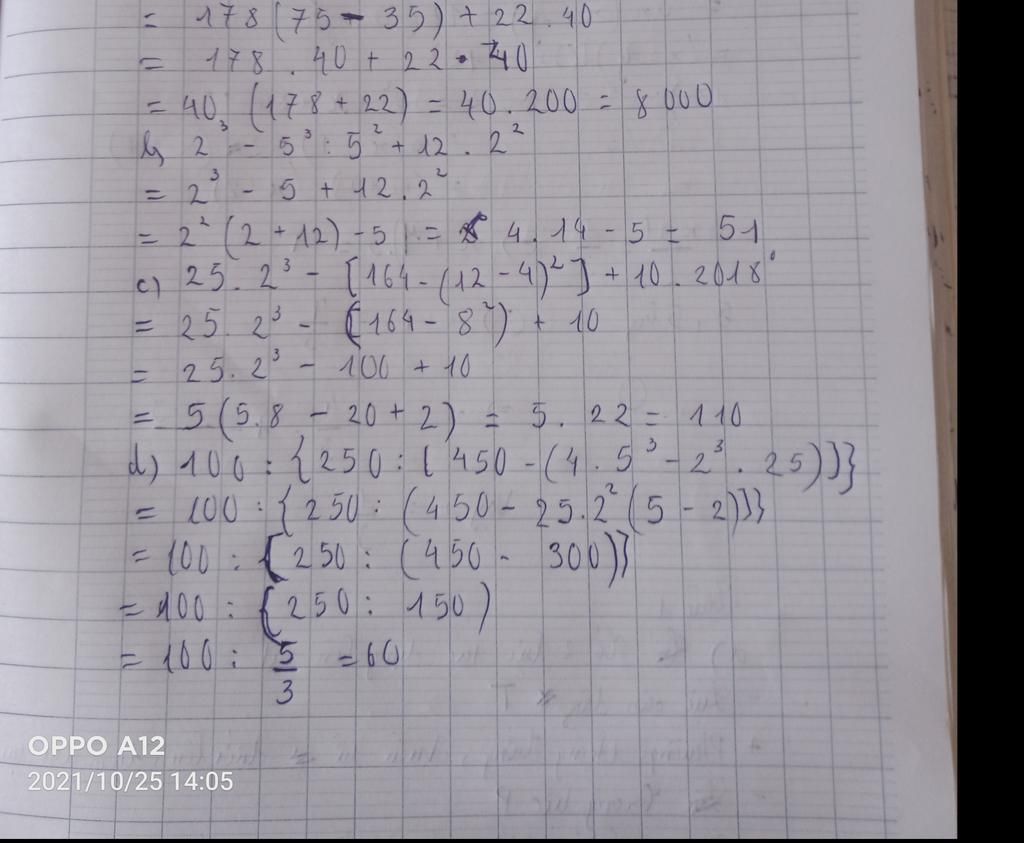 = 178 (75 - 35) + 22 . 40
= 178 . 40 + 22 . 40
= 40 (178 + 22) = 40 . 200 = 8 000
b, 2³ - 5³ : 5² + 12 . 2²
= 2³ - 5 + 12 . 2²
= 2² (2 + 12) - 5 = 4 . 14 - 5 = 51
c) 25 . 2³ - [164 - (12 - 4)²] + 10 . 2018⁰
= 25 . 2³ - (164 - 8²) + 10
= 25 . 2³ - 100 + 10
= 5 (5.8 - 20 + 2) = 5 . 22 = 110
d) 100 : {250 : (450 - (4 . 5³ - 2³ . 25))}
= 100 : {250 : (450 - 25.2² (5 - 2)}}
= 100 : {250 : (450 - 300)}
= 100 : {250 : 150)
= 100 : 5/3 = 60
OPPO A12
2021/10/25 14:05